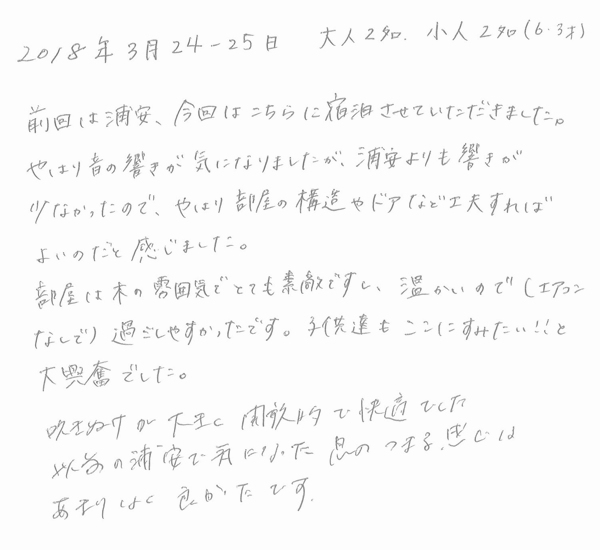 2018年3月24-25日　大人2名. 小人2名(6・3才)
前回は浦安、今回はこちらに宿泊させていただきました。
やはり音の響きが気になりましたが、浦安よりも響きが
少なかったので、やはり部屋の構造やドアなど工夫すれば
よいのだと感じました。
部屋は木の雰囲気でとても素敵ですし、温かいので(エアコン
なしで)過ごしやすかったです。子供達もここにすみたい!!と
大興奮でした。
吹きぬけが大きく開放的で快適でした
以前の浦安で気になった息のつまる感じは
あまりなく良かったです.